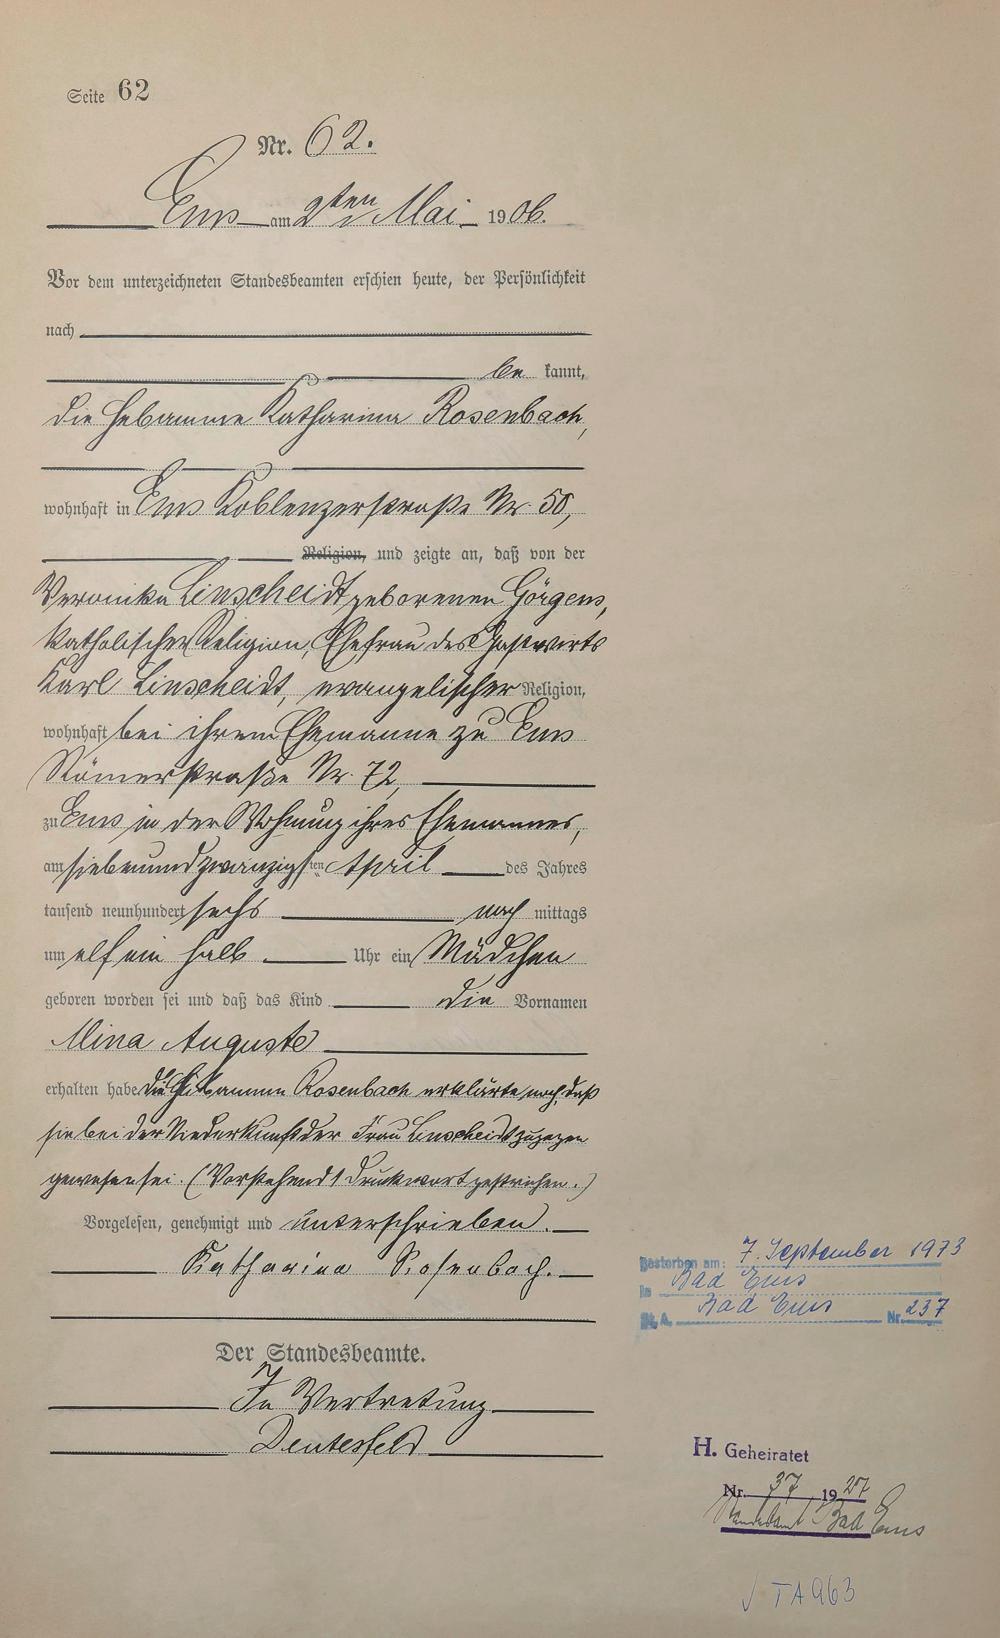 Seite 62
Nr. 62.
Ems am 2ten Mai 1906.
Vor dem unterzeichneten Standesbeamten erschien heute, der Persönlichkeit
nach
be kannt,
die Hebamme Katharina Rosenbach,
wohnhaft in Ems Koblenzerstraße Nr. 50,
Religion, und zeigte an, daß von der
Veronika Linscheidt geborenen Görgens,
katholischer Religion, Ehefrau des Gastwirts
Karl Linscheidt, evangelischer Religion,
wohnhaft bei ihrem Ehemanne zu Ems
Römerstraße Nr. 72,
zu Ems in der Wohnung ihres Ehemannes,
am siebenundzwanzigsten April des Jahres
tausend neunhundert sechs nach mittags
um elf ein halb Uhr ein Mädchen
geboren worden sei und daß das Kind die Vornamen
Mina Auguste
erhalten habe. Die Hebamme Rosenbach erklärte noch, daß
sie bei der Niederkunft der Frau Linscheidt zugegen
gewesen sei. (Vorstehend 1 Druckwort gestrichen.)
Vorgelesen, genehmigt und unterschrieben.
Katharina Rosenbach.
Der Standesbeamte.
In Vertretung
Deutesfeld
Gestorben am: 7. September 1973
in Bad Ems
St. A. Bad Ems Nr. 237
H. Geheiratet
Nr. 37 1927
Standesamt Bad Ems
√ TA963